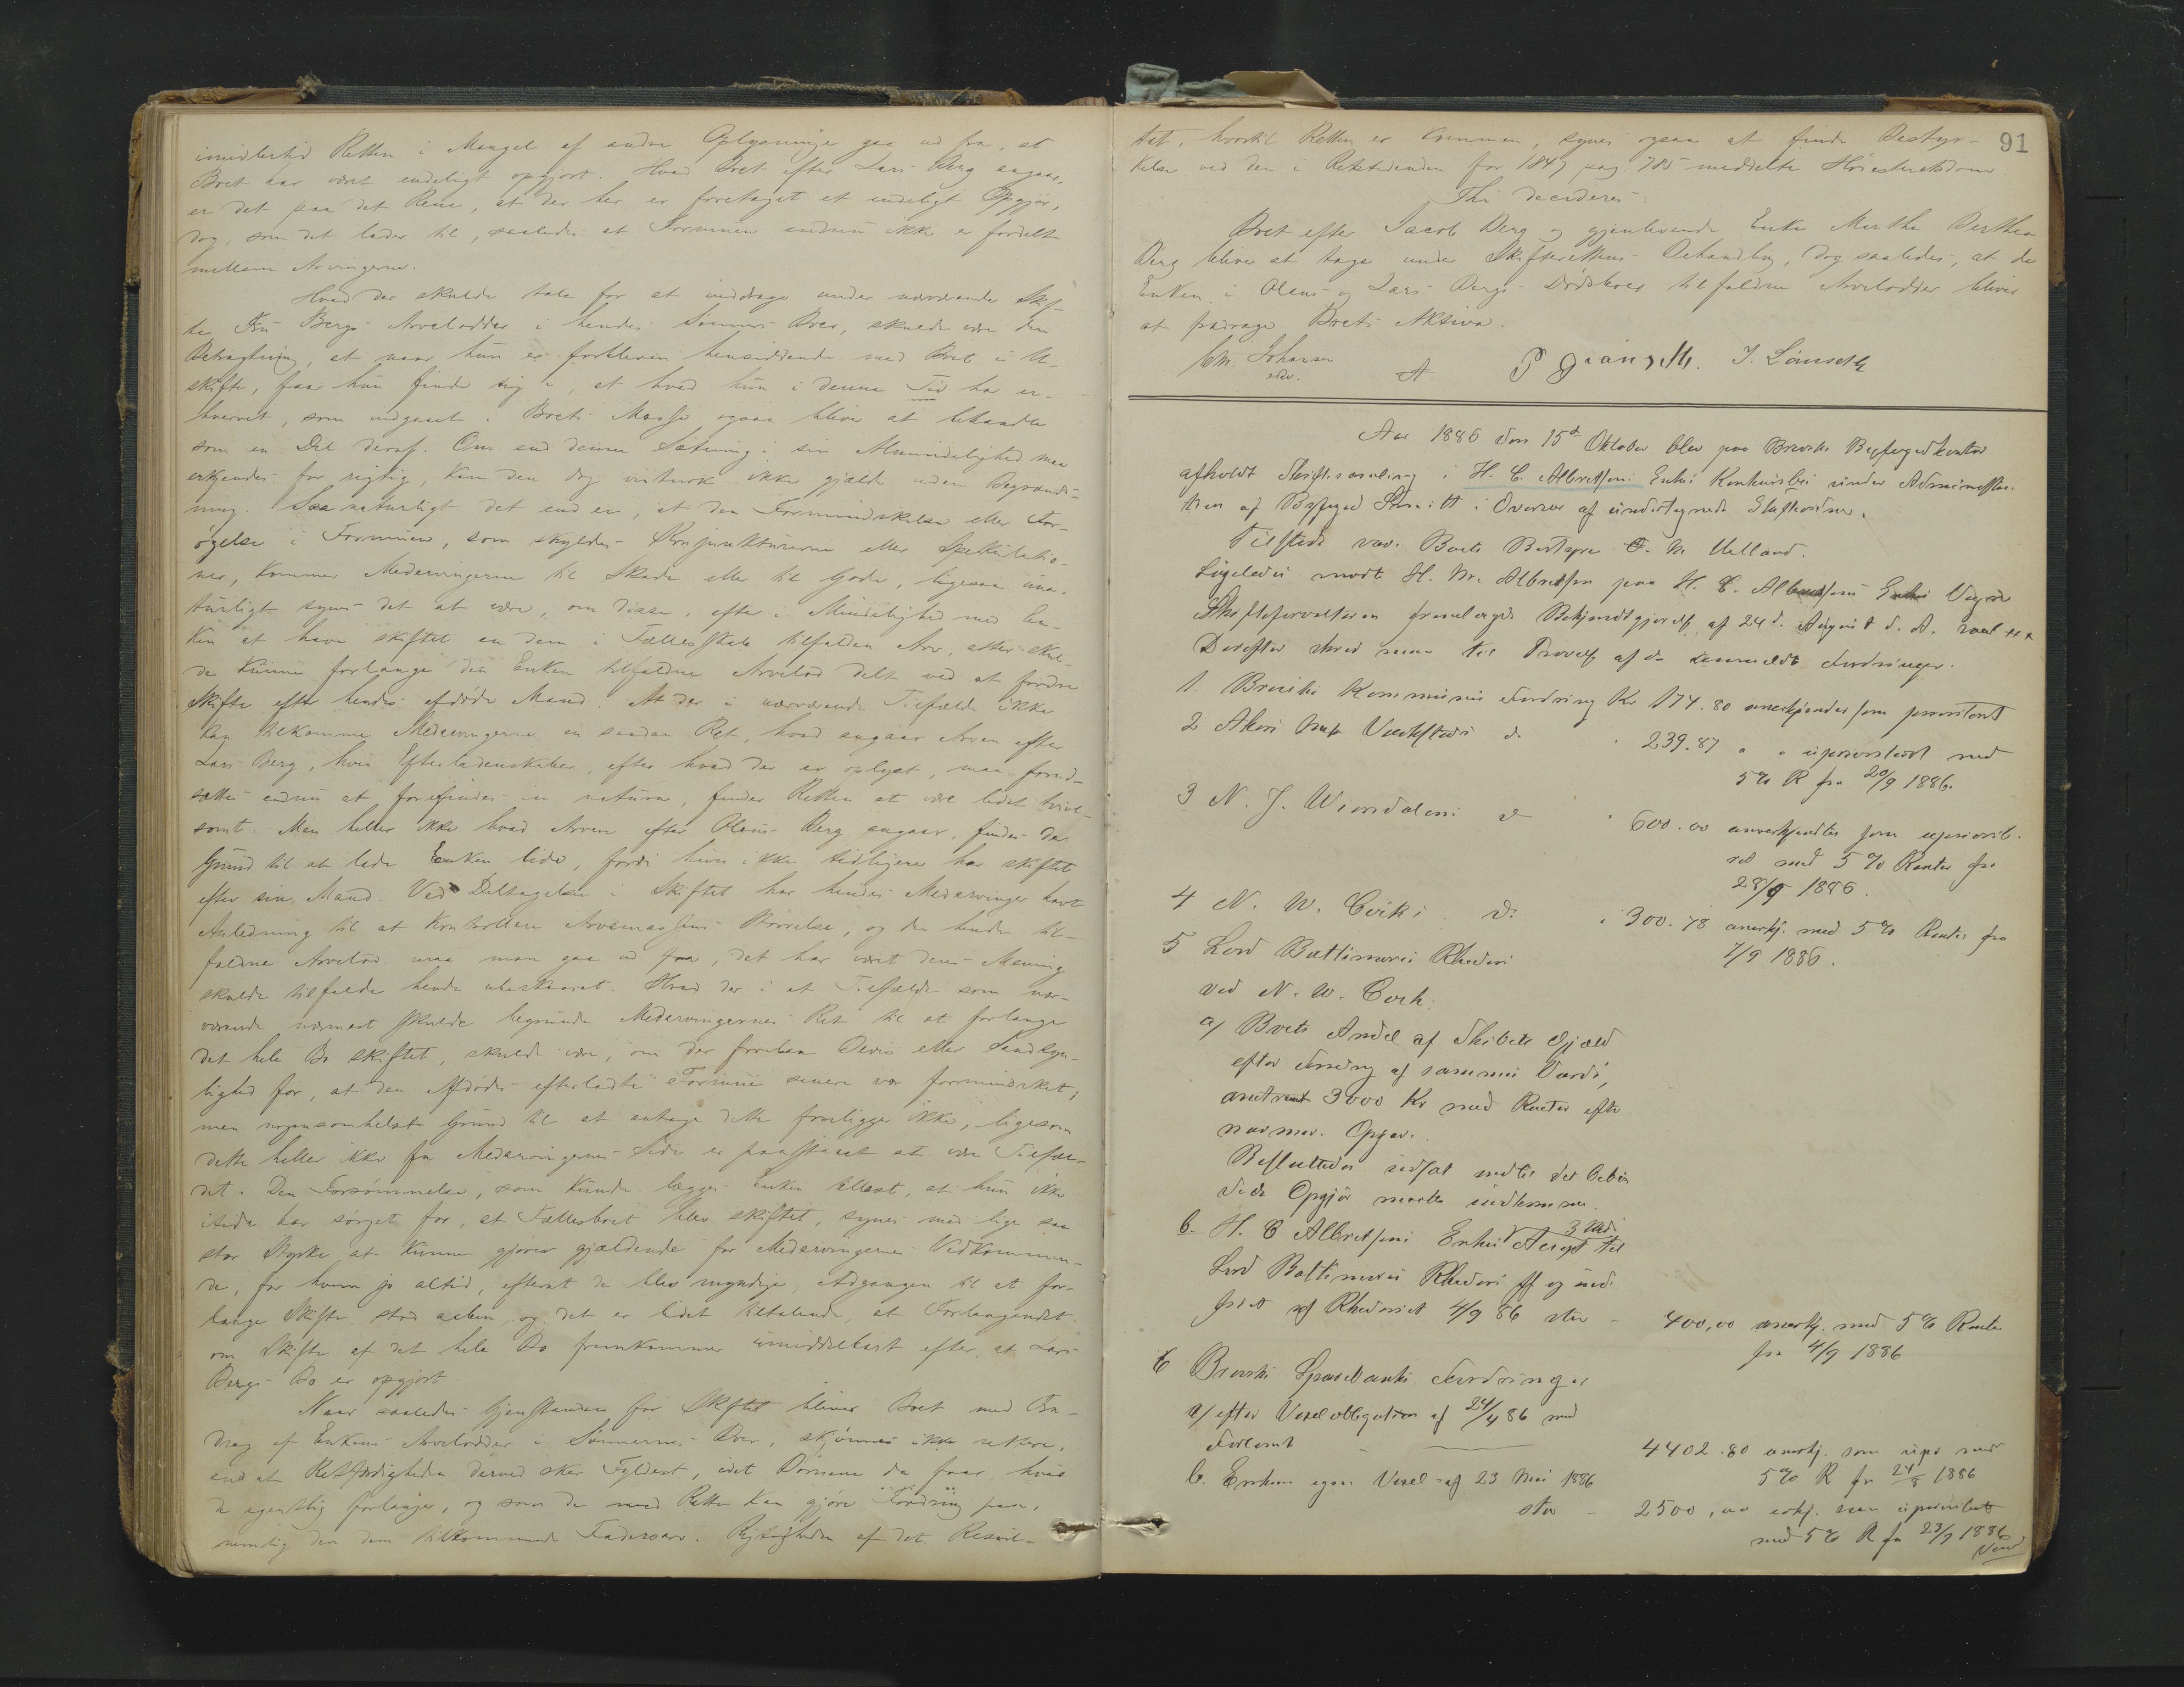 imidlertid Retten i Mangel af andre Oplysninger gaa ud fra, at
Boet har været endeligt opgjort. Hvad Boet efter Lars Berg angaar,
er det paa det Rene, at der her er foretaget et endeligt Opgjør,
dog, som det lader til, saaledes at Formuen endnu ikke er fordelt
mellem Arvingerne.
Hvad der skulde tale for at inddrage under nærværende Skif-
te Fru Bergs Arvelodder i hendes Sønners Boer, skulde være den
Betragtning, at naar hun er forbleven hensiddende med Boet i U-
skifte, faar hun finde sig i, at hvad hun i denne Tid har er-
hvervet, som indgaaet i Boets Masse ogsaa bliver at behandle
som en Del deraf. Om end denne Sætning i sin Almindelighed maa
erkjendes for rigtig, kan den dog vistnok ikke gjælde uden Begrænds-
ning. Saa naturligt det end er, at den Formindskelse eller For-
øgelse i Formuen, som skyldes Konjunkturerne eller Spekulatio-
ner, kommer Medarvingerne til Skade eller til Gode, ligesaa una-
turligt synes det at være, om disse, efter i Mindelighed med En-
ken at have skiftet en dem i Fællesskab tilfalden Arv, atter skul-
de kunne forlange den Enken tilfaldne Arvelod delt ved at fordre
Skifte efter hendes afdøde Mand. At der i nærværende Tilfælde ikke
kan tilkomme Medarvingerne en saadan Ret, hvad angaar Arven efter
Lars Berg, hvis Efterladenskaber, efter hvad der er oplyst, maa forud-
sættes endnu at forefindes in natura, finder Retten at være lidet tvivl-
somt. Men heller ikke hvad Arven efter Oleus Berg angaar, findes der
Grund til at lade Enken lide, fordi hun ikke tidligere har skiftet
efter sin Mand. Ved Deltagelsen i Skiftet har hendes Medarvinger havt
Anledning til at kontrollere Arvemassens Størrelse, og den hende til-
faldne Arvelod maa man gaa ud fra, det har været deres Mening
skulde tilfalde hende ubeskaaret. Hvad der i et Tilfælde som nær-
værende nærmest skulde begrunde Medarvingernes Ret til at forlange
det hele Bo skiftet, skulde være, om der forelaa Bevis eller Sandsyn-
lighed for, at den Afdødes efterladte Formue senere var formindsket;
men nogensomhelst Grund til at antage dette foreligger ikke, ligesom
dette heller ikke fra Medarvingernes Side er paastaaet at være Tilfæl-
det. Den Forsømmelse, som kunde lægges Enken tillast, at hun ikke
itide har sørget for, at Fællesboet blev skiftet, synes med lige saa
stor Styrke at kunne gjøres gjældende for Medarvingernes Vedkommen-
de, for hvem jo altid, efterat de blev myndige, Adgangen til at for-
lange Skifte stod aaben, og det er lidet tiltalende, at Forlangendet
om Skifte af det hele Bo fremkommer umiddelbart efter, at Lars
Bergs Bo er opgjort.
Naar saaledes Gjenstanden for Skiftet bliver Boet med Fra-
drag af Enkens Arvelodder i Sønnernes Boer, skjønnes ikke rettere,
end at Retfærdigheden derved sker Fyldest, idet Børnene da faar, hvad
de egentlig forlanger, og som de med Rette kan gjøre Fordring paa,
nemlig den dem tilkommende Fadersarv. Rigtigheden af det Resul-
91
tat, hvortil Retten er kommen, synes ogsaa at finde Bestyr-
kelse ved den i Retstidenden for 1847 pag. 785 meddelte Høiesteretsdom.
Thi decideres:
Boet efter Jacob Berg og gjenlevende Enke Marthe Berthea
Berg bliver at tage under Skifterettens Behandling, dog saaledes, at de
Enken i Oleus og Lars Bergs Dødsboer tilfaldne Arvelodder bliver
at fradrage Boets Aktiva.
Chr. Johansen
edv.
Aar 1886 den 15d Oktober blev paa Brevik Byfogedkontor
afholdt Skiftesamling i H. C. Albretsens Enkes Konkursbo under Administra-
tion af Byfoged Smitt i Overvær af undertegnede Skiftevidner.
Tilstede var Boets Bestyrer O. M. Uelland.
Ligeledes mødte H. M. Albretsen paa H. C. Albretsens Enkes Vegne
Skifteforvalteren fremlagde Bekjendtgjørelse af 24d. August d. A.
Derefter skred man til Prøvelse af de anmeldte Fordringer.
1. Breviks Kommunes Fordring Kr 174.80 anerkjendes som prioriteret
2 Akers mek Værksteds do 239.87 " " uprioriteret med
5% R fra 20/9 1886.
3 N. J. do 600.00 anerkjendtes som upriorite-
ret med 5 % Renter fra
28/9 1886.
4 N. W. do 300.78 anerkj. med 5% Renter fra
7/9 1886.
5 Lord Baltimores Rhederi
ved N. W.
a/ Boets Andel af Skibets Gjæld
efter Fradrag af sammes Værdi,
omtrent 3000 Kr med Renter efter
nærmer. Opgav.
Besluttedes udsat indtil det
Opgjør maatte indkomme.
b. H. C Albretsens Enkes Accept 3 Mdr. til
Lord Baltimores Rhederi
af Rhederiet 4/9 86 stor - 400,00 anerkj. med 5% Rente
fra 4/9 1886
6 Breviks Sparebanks Fordringer
a/ efter Vexelobligation af 24/4 86 med
Forlomt - 4402.80 anerkj. som upr med
5% R fra 24/8 1886
b. Enkens egen Vexel af 23 Mai 1886
stor - 2500,00 erkj. som uprioriteret
med 5% R fra 23/9 1886
Vend